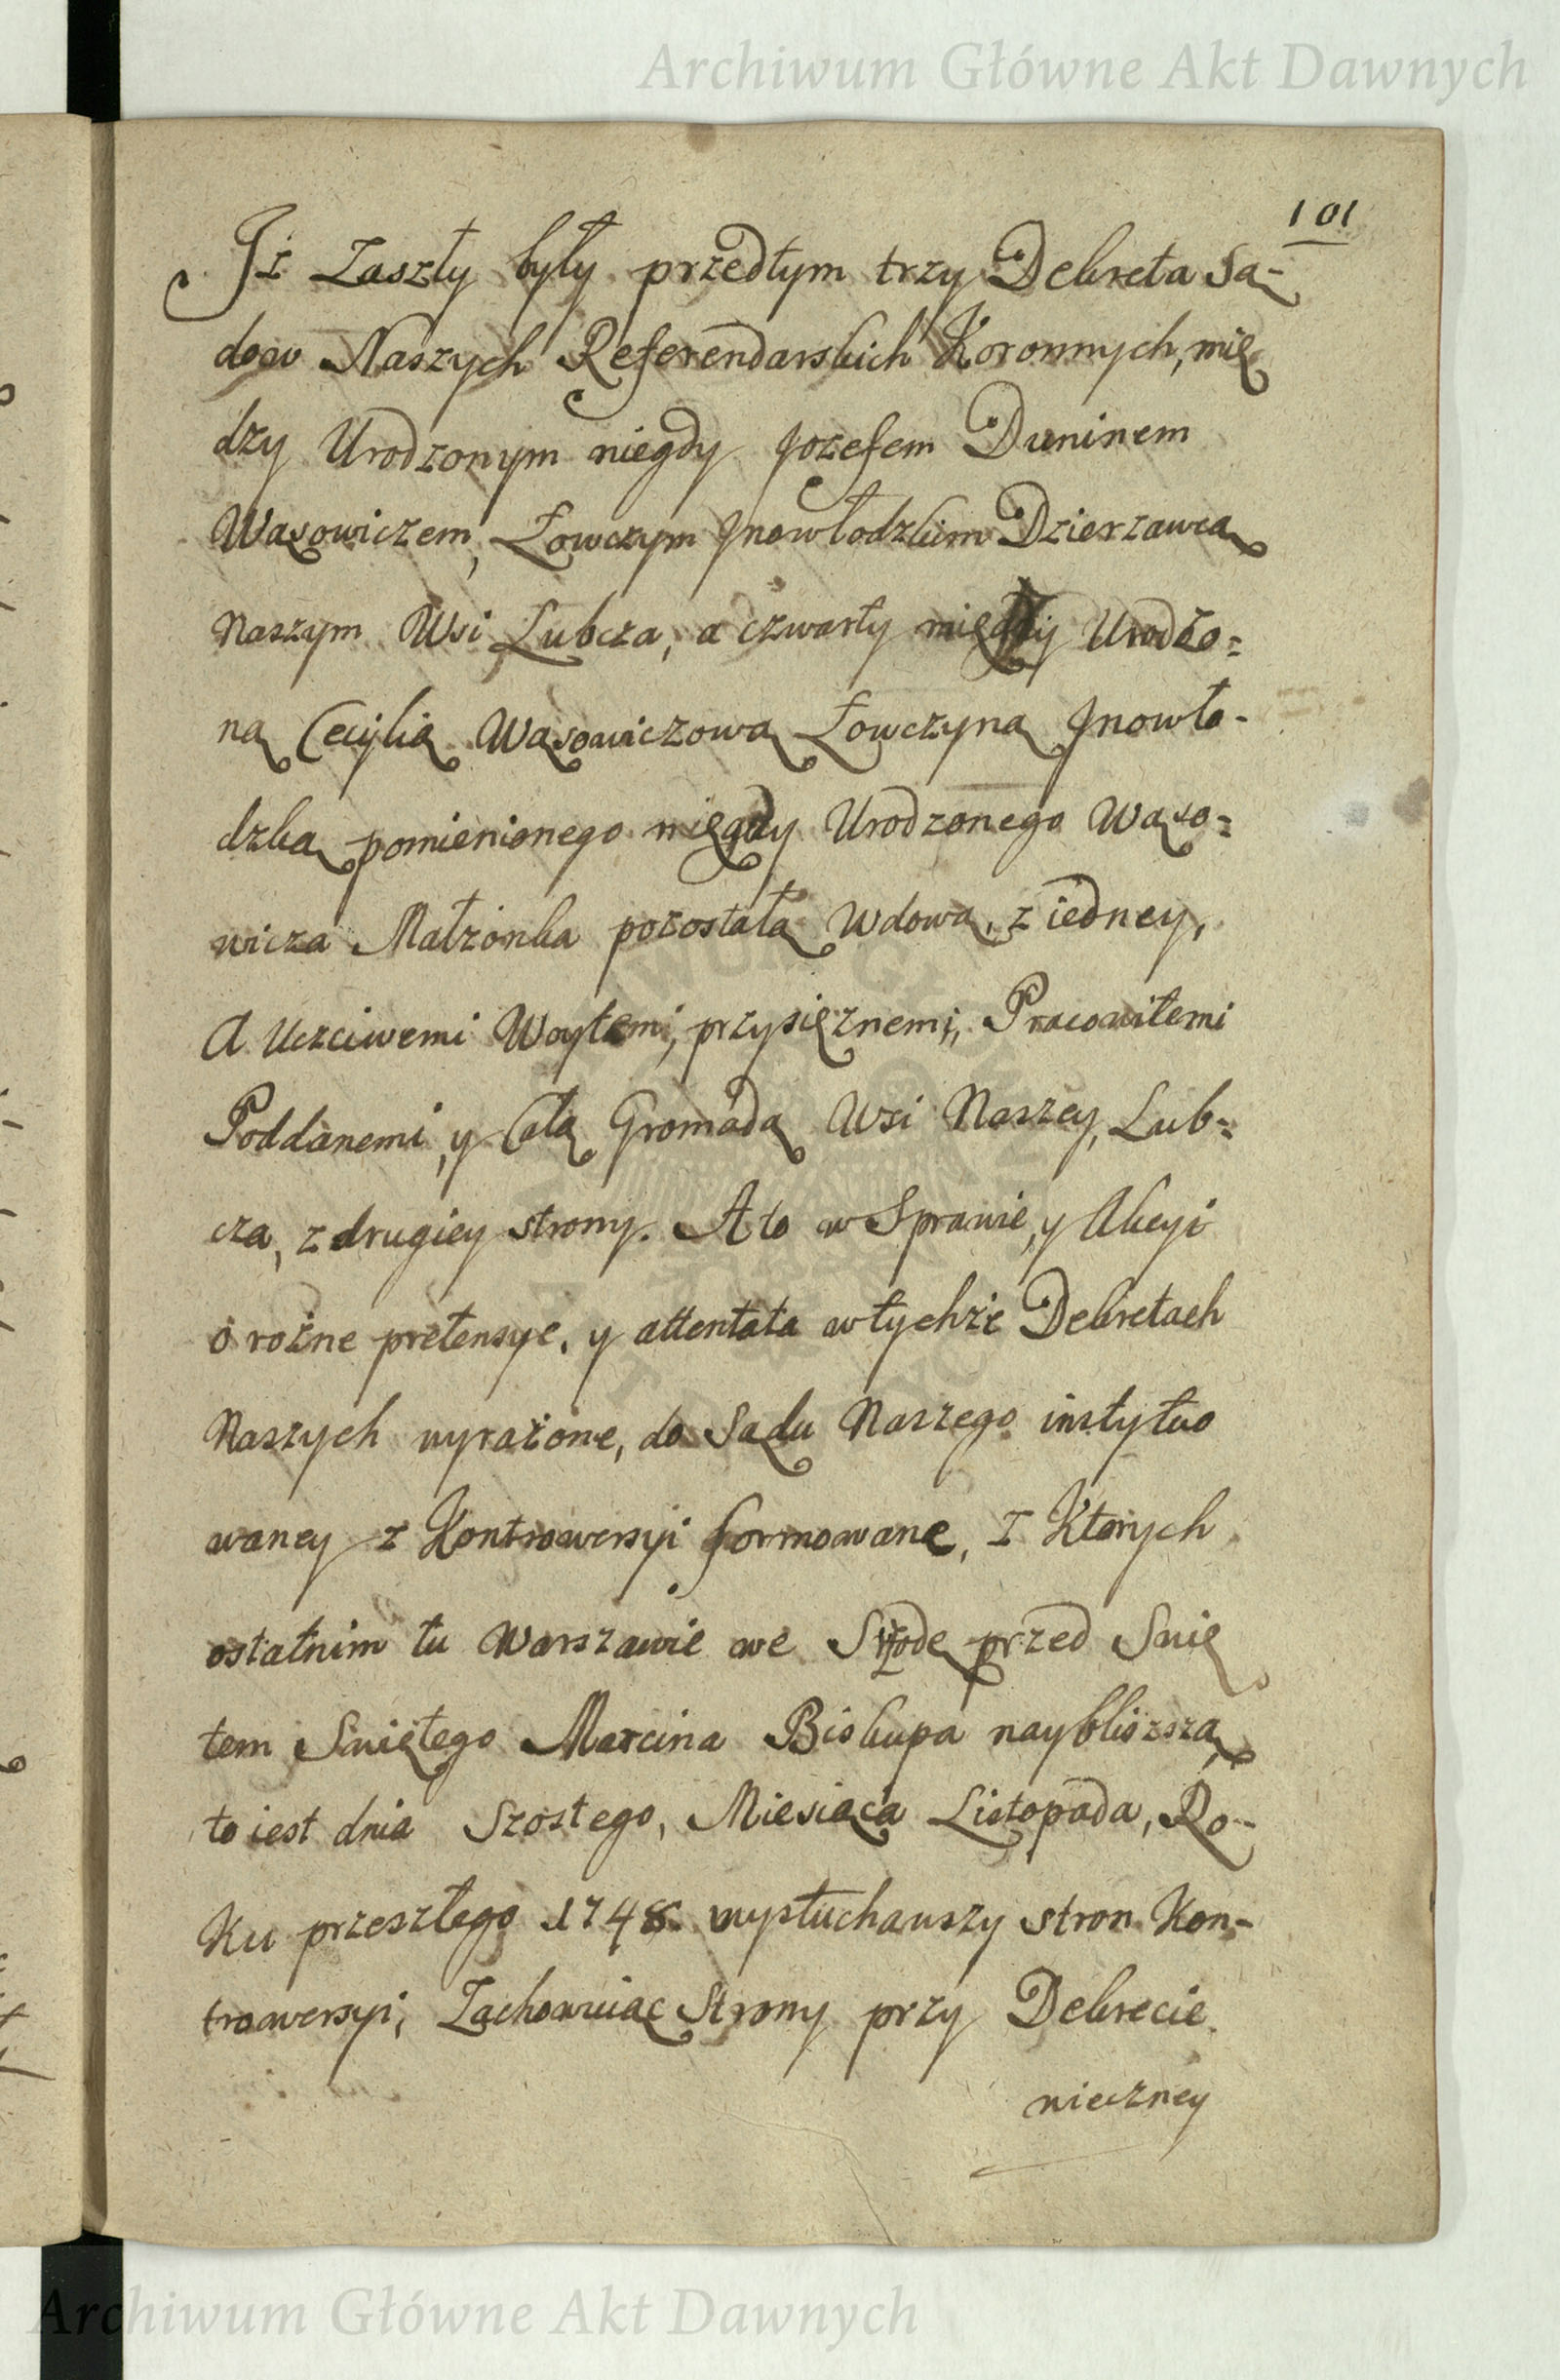 Archiwum Główne Akt Dawnych
101
Iż Zaszły były przedtym trzy Dekreta Są-
dow Naszych Referendarskich Koronnych, mię
dzy Urodzonym niegdy Jozefem Duninem
Wąsowiczem, Łowczym Jnowłodzkim Dzierzawcą
Naszym Wsi Lubcza, a czwarty między Urodzo=
ną Cecylią Wąsowiczową Łowczyną Jnowło-
dzką pomienionego niegdy Urodzonego Wąso=
wicza Małżonka pozostałą Wdową, z iedney,
A Uczciwemi Woytemi, przysięznemi, Pracowitemi
Poddanemi, y Całą Gromadą Wsi Naszey, Lub=
cza, z drugiey strony. A to w Sprawie, y Akcyi
o rożne pretensye, y attentata w tychże Dekretach
Naszych wyrażone, do Sądu Naszego instytuo
waney z Kontrowersyi formowane, z Ktorych
ostatnim tu Warszawie we Srzodę przed Swię
tem Swiętego Marcina Biskupa naybliższą
to iest dnia Szostego, Miesiąca Listopada, Ro-
ku przeszłego 1748. wysłuchawszy stron Kon-
trowersyi, Zachowuiąc Strony przy Dekrecie
wieczney
Archiwum Główne Akt Dawnych